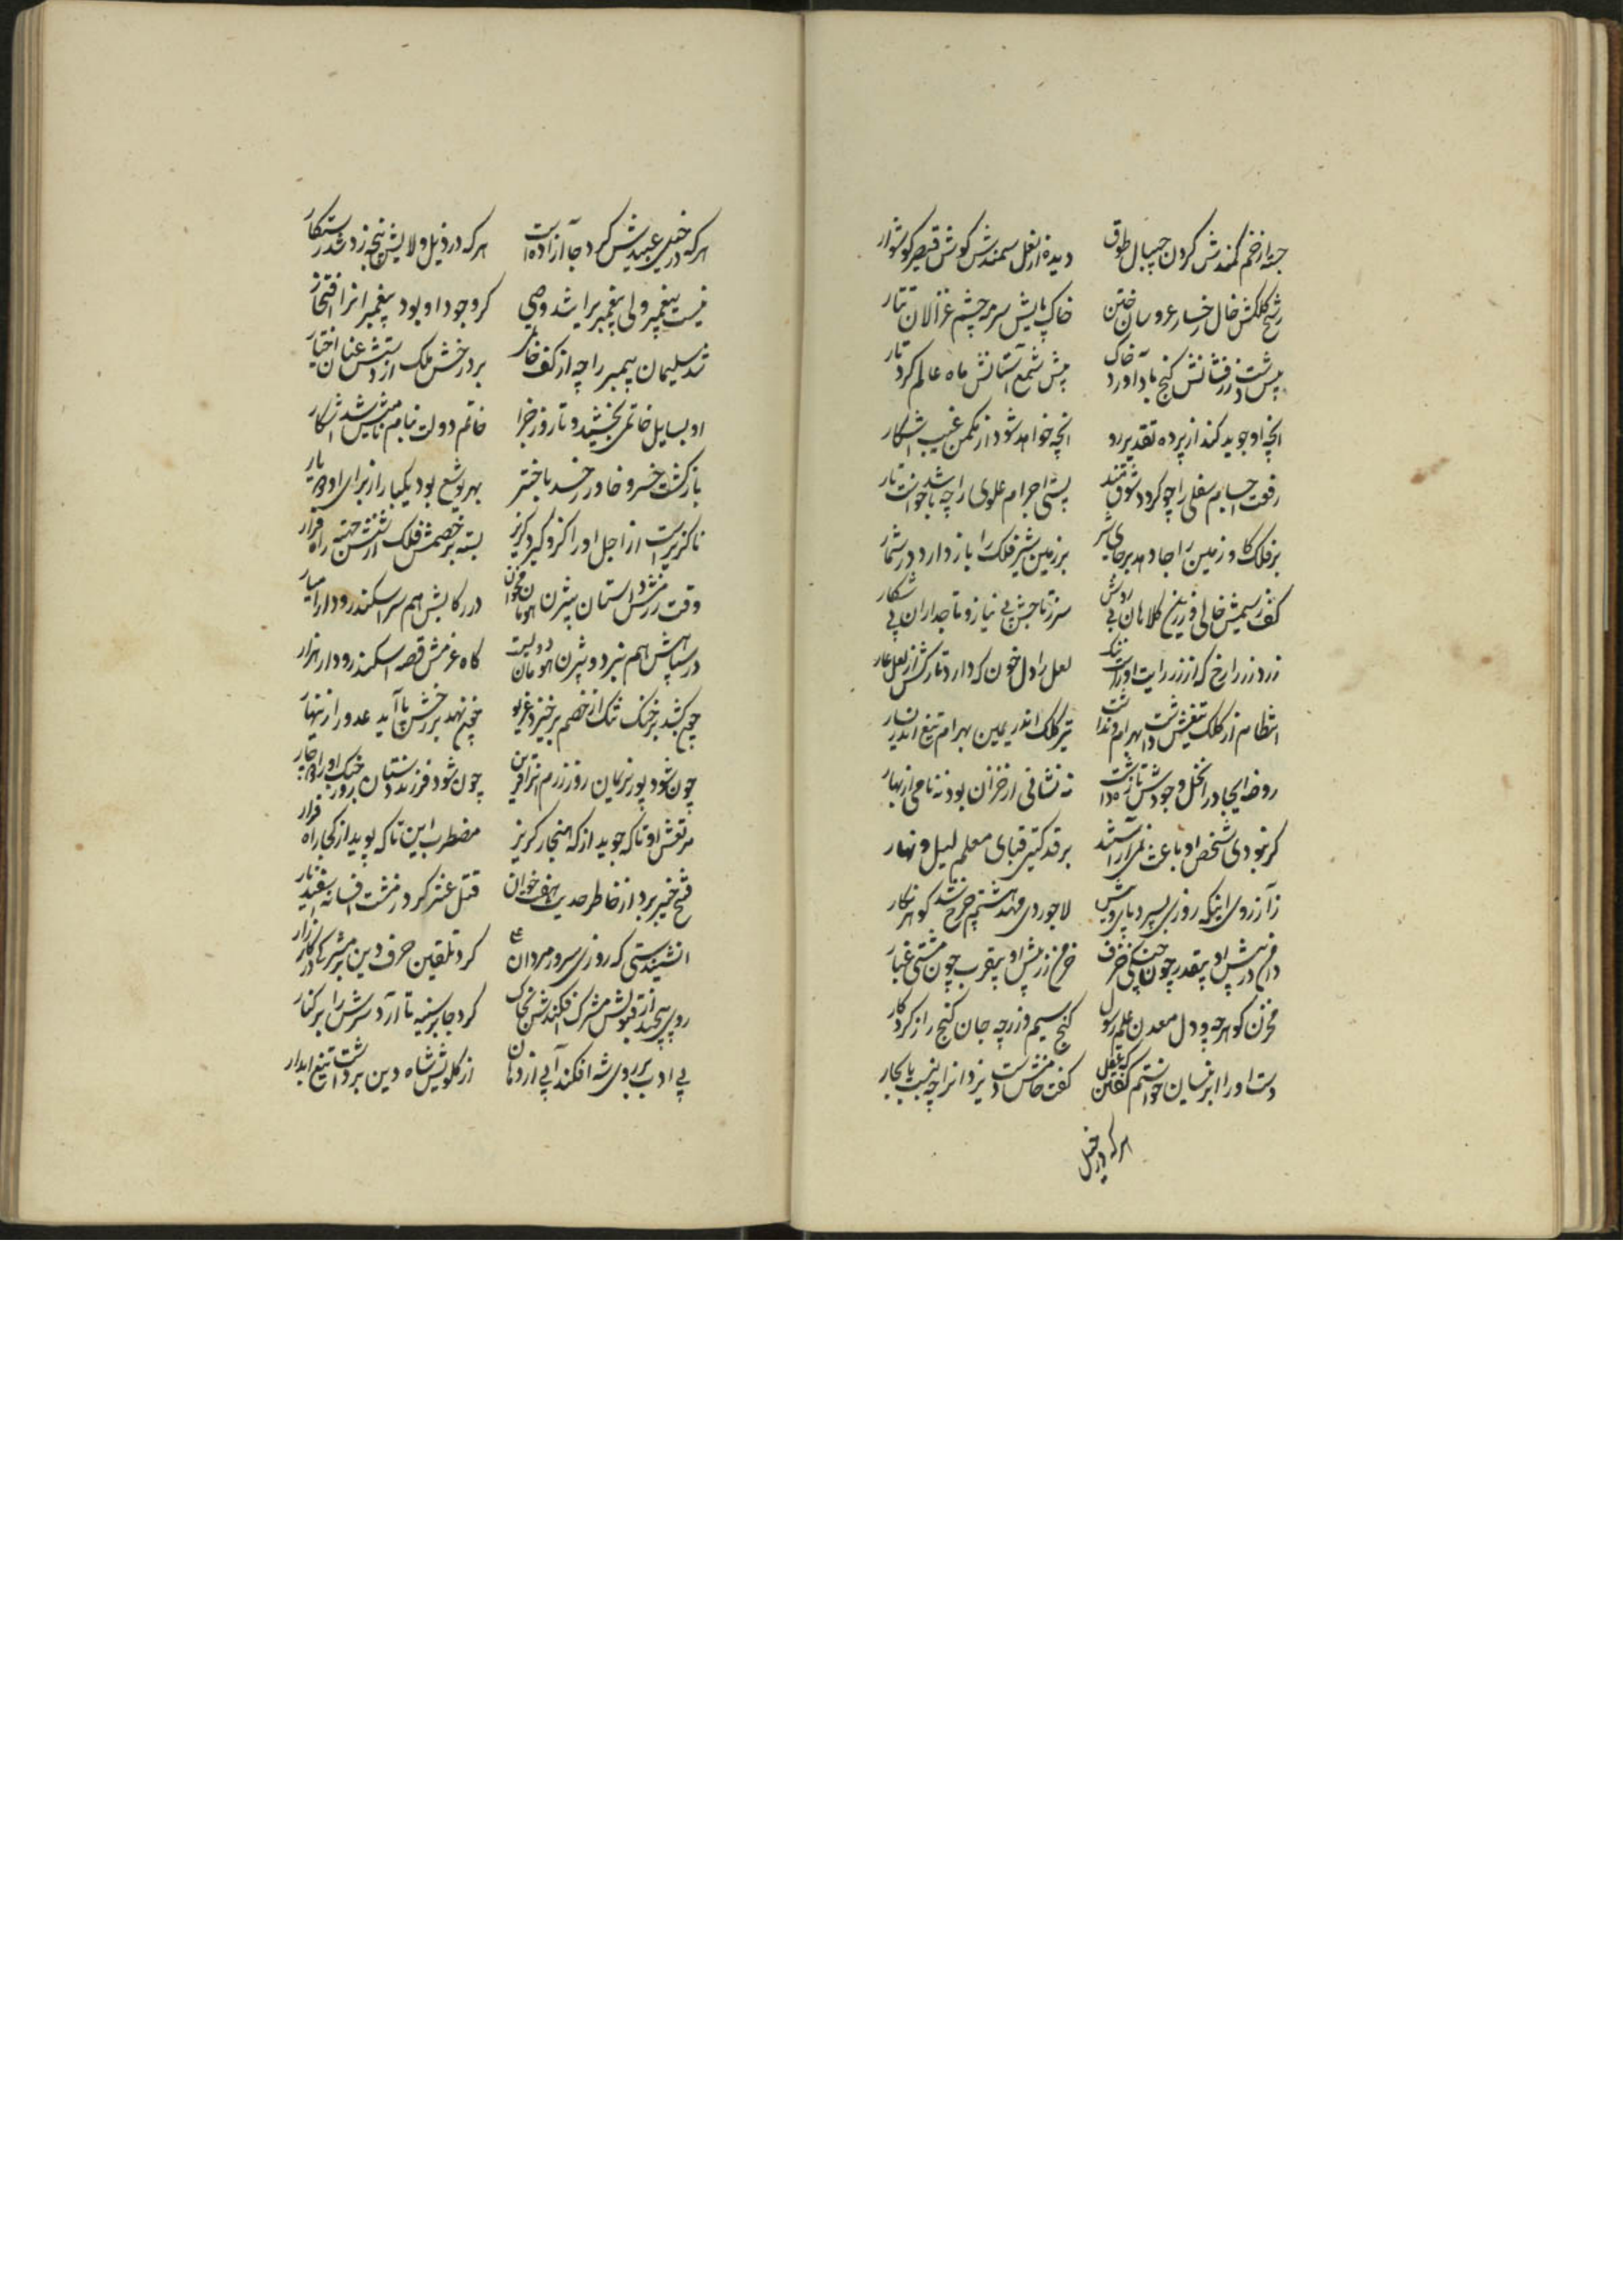 جسته از خم کمندش کردن جیپال طوق    دیده از نعل سمندش کوش قیصر کوشوار
رشح کلکش خال رخسار عروسان ختن    خاک پایش سرمه چشم غزالان تتار
پیش دست زرفشانش کنج بادآورد خاک    پیش شمع آستانش ماه عالم کرد تار
انچه او جوید کند از پرده تقدیر رو    انچه خواهد شود از مکمن غیب اشکار
رفعت اجسام سفلی را چو کردد شوقمند    پستی اجرام علوی را چه باشد خواستار
بر فلک کاو زمین را جا دهد بر جای شیر    بر زمین شیر فلک را باز دارد در شمار
کف ز سیمش خالی و زرین کلاهان بی    سر ز تاجش بی نیاز و تاجداران پی شکار
زرد زر را رخ که از زر رایت او راست ننک    لعل را دل خون که دارد تارکش از لعل عار
انتظام از کلک و تیغش داشت بهرام    تیر کلک اندر یمین بهرام تیغ اندر یسار
روضه ایجاد را نخل وجودش تازه داشت    نه نشانی از خزان بود نه نامی از بهار
کر نبودی شخص او باعث    بر قد کیتی قبای معلم لیل و نهار
ز آرزوی اینکه روزی بسپرد پای ویش    لاجوردی مهد هشتم چرخ شد کوهر نکار
در پیش او بیقدر چون خزف    زر پیش او بیقرب چون مشتی غبار
مخزن کوهر چه و دل معدن علم رسول    کنج سیم و زر چه جان کنج راز کردکار
دست او را ابر نیسان خواستم کفتن    کفت خامش دست یزدانرا چه نسبت با بحار
هرکه در خیل
هرکه در خیل عبیدش کرد جا آزاده است    هرکه در ذیل ولایش پنجه زد شد رستکار
نیست پیغمبر ولی پیغمبر را شد وصی    کز وجود او بود پیغمبرانرا افتخار
شد سلیمان پیمبر را چه از کف خاتم    برد رخش ملک از دستش عنان اختیار
او بسایل خاتمی بخشید و تا روز جزا    خاتم دولت بنام نامیش شد اشکار
بازکشت خسرو خاور ز خد باختر    بهر یوشع بود یکبار از برای او دوبار
ناکزیر است از اجل او را کزو کیرد کریز    بسته بر خصمش فلک از شش جهت راه فرار
وقت رزمش داستان بیژن هومان مخوان    در رکابش هم سر اسکندر و دارا میار
در سپاهش هم نبرد بیژن هومان دویست    کاه عزمش قصه اسکندر و دارا هزار
چون کشد بر خنک تنک از خصم برخیزد غریو    چون نهد بر رخش پا آید عدو را زینهار
چون شود پور نریمان روز رزم    چون شود فرزند دستان روز جنک او را دچار
مرتعش او تا که جوید از که هنجار کریز    مضطرب این تا که پوید از کجا راه فرار
فتح خیبر برد از خاطر حدیث هفت خوان    قتل عنتر کرد زشت افسانه اسفندیار
انشنیدستی که روزی سرور مردان    کرد تلقین حرف دین بر مشرکی در کارزار
روی پیچید از قبولش مشرک افکندش بخاک    کرد جا بر سینه تا آرد سرش را بر کنار
بی ادب بر روی شه افکند آبی از دهان    از کلویش شاه دین برداشت تیغ ابدار